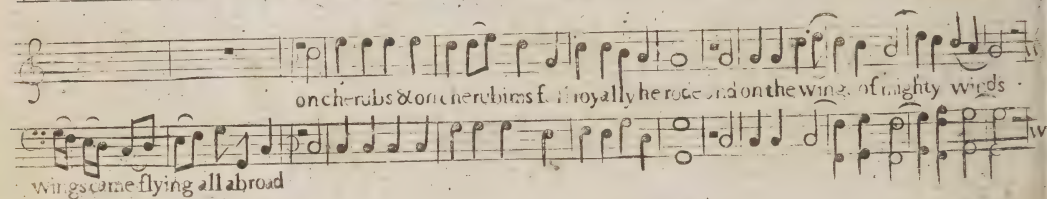 on cherubs & on cherubims full royally he rode and on the wings of mighty winds
wings came flying all abroad